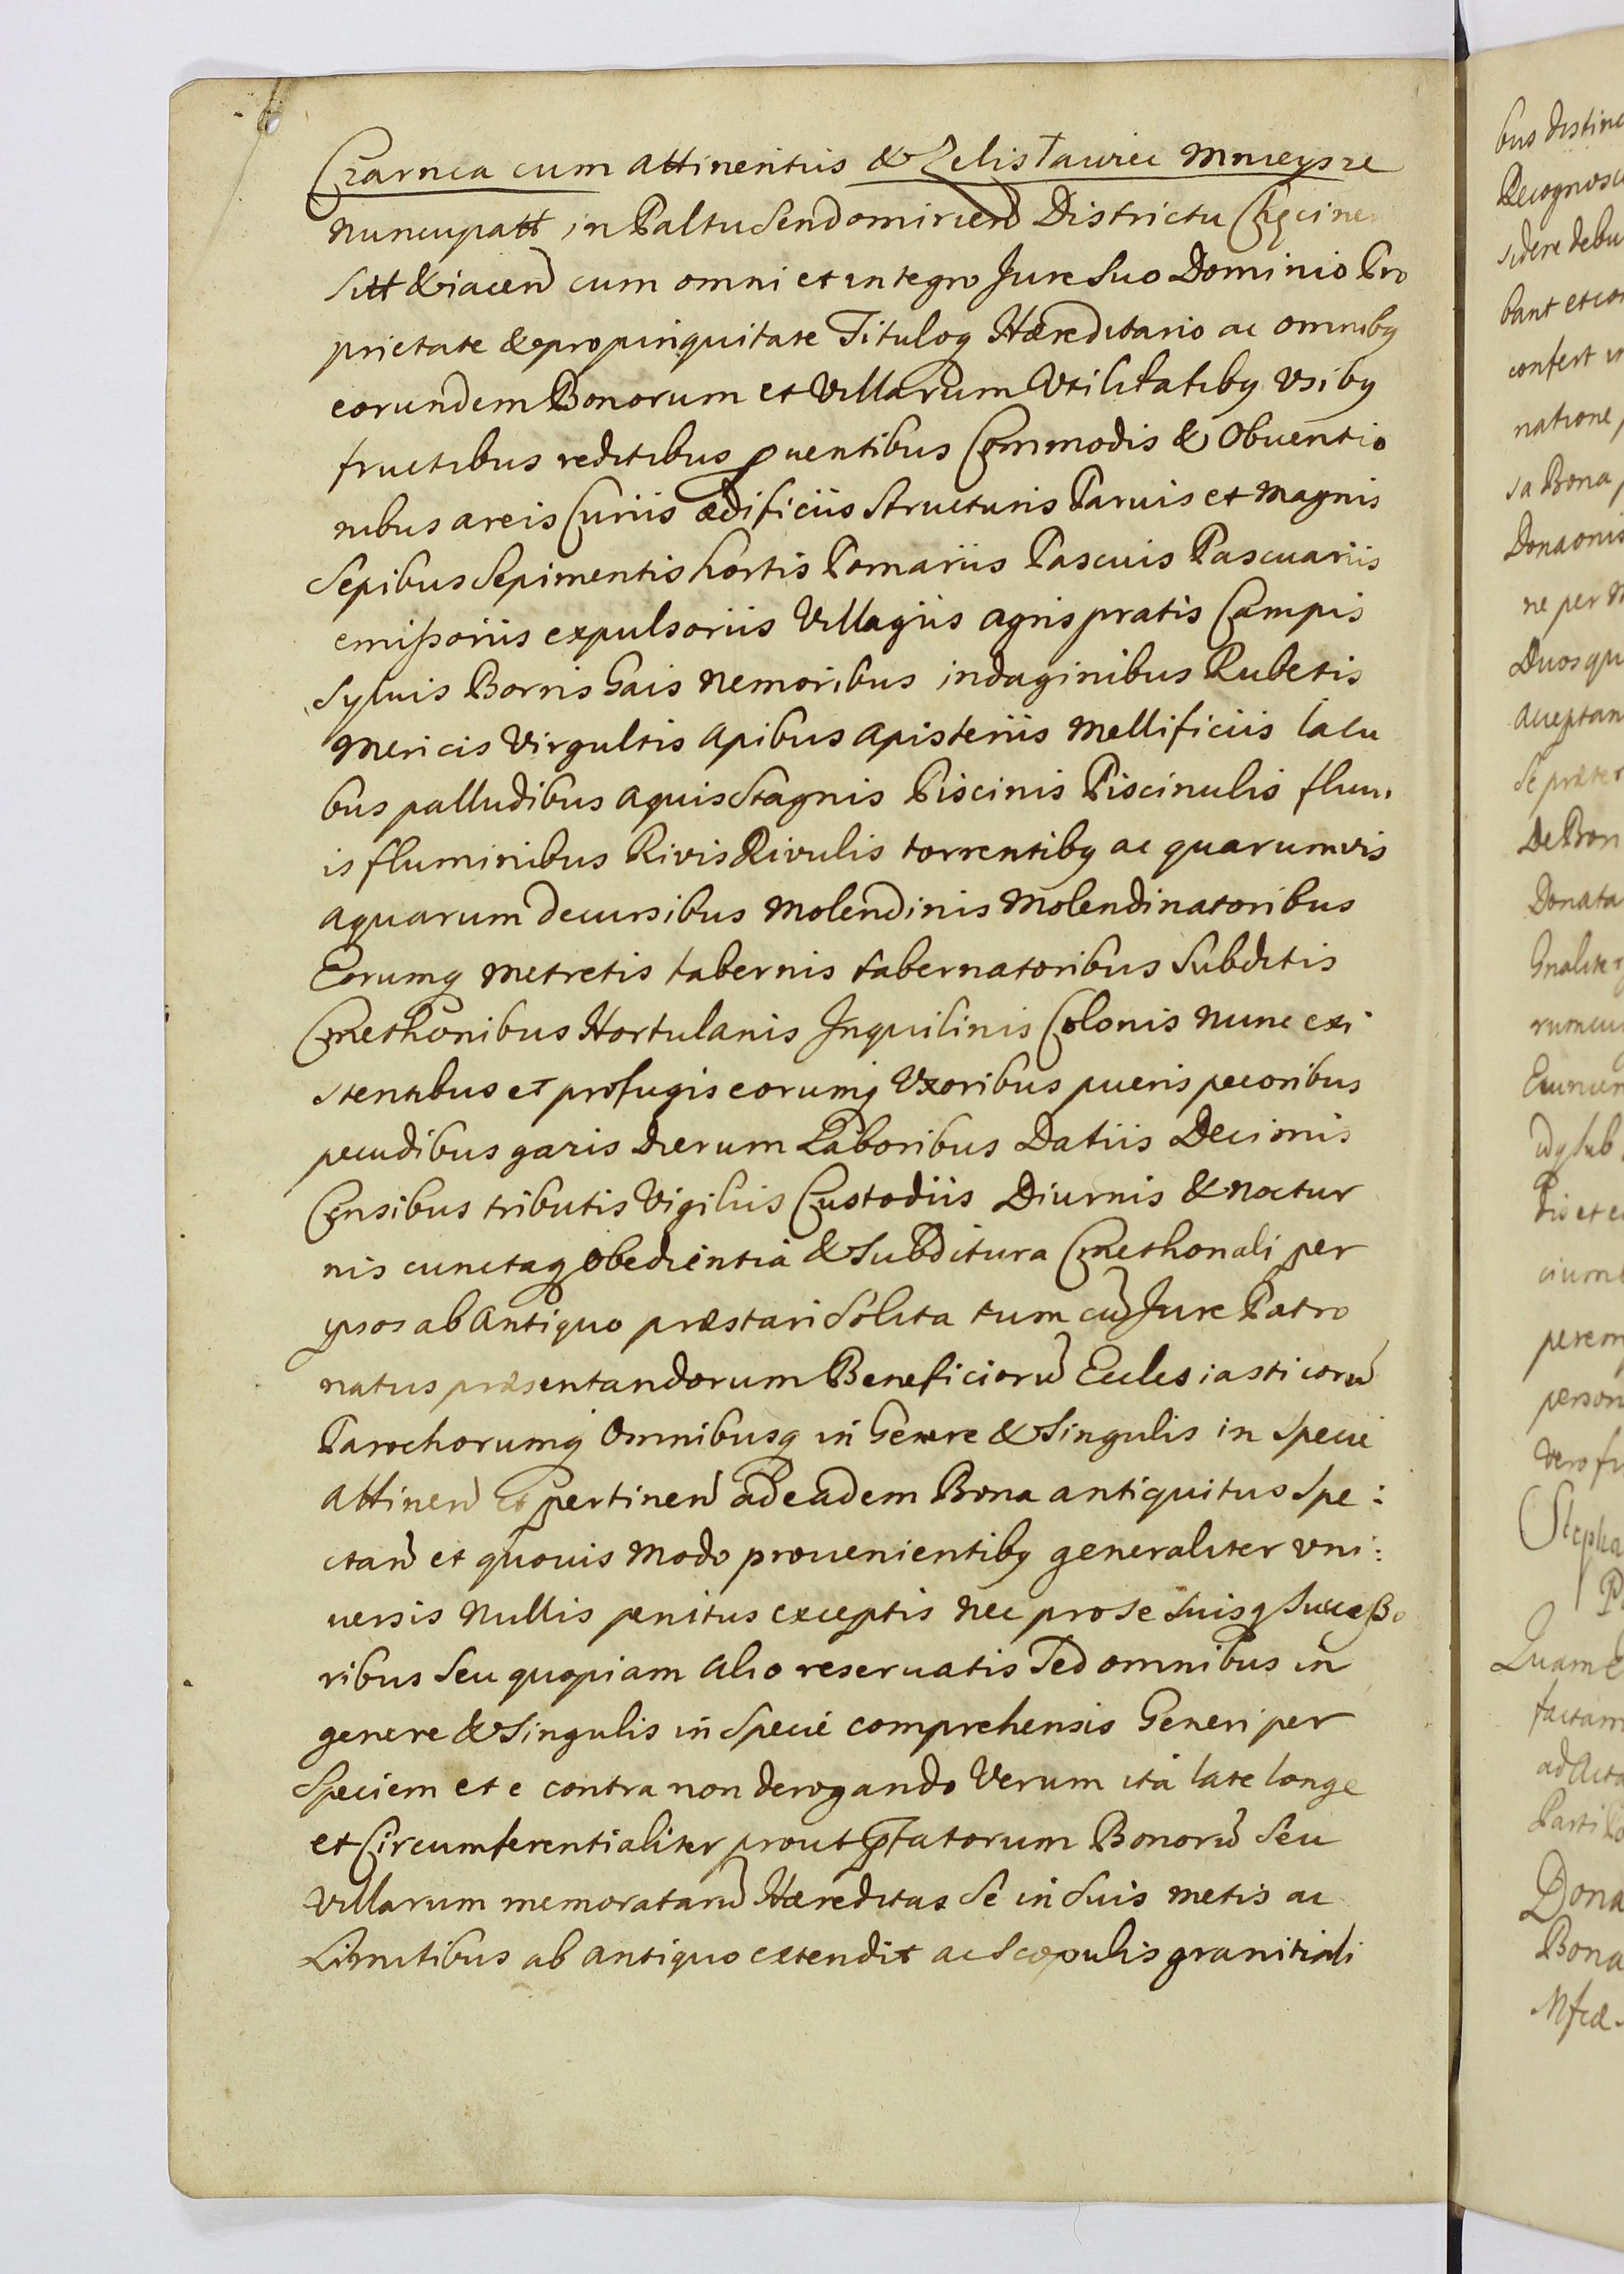 Czarnca cum attinentiis & Zelislawice mnieysze
nuncupatt in Paltu Sendomirien Districtu Chęcinen
sitt & iacen cum omni et integro Jure Suo Dominio Pro
prietate & propinquitate Tituloq Hæreditario ac omnibq
eorundem Bonorum et Villarum Vtilitatibq vsibq
fructibus reditibus puentibus Commodis & Obuentio
nibus areis Curiis ædificiis Structuris Paruis et Magnis
Sepibus Sepimentis hortis Pomariis Pascuis Pascuariis
emißoriis expulsoriis Villagiis agris pratis Campis
Syluis Borris Gais Nemoribus indaginibus Rubetis
Mericis Virgultis Apibus Apisteriis Mellificiis lacu
bus palludibus aquis Stagnis Piscinis Piscinulis fluui
is fluminibus Rivis Rivulis torrentibq ac quarumvis
aquarum decursibus Molendinis Molendinatoribus
Eorumq metretis tabernis tabernatoribus Subditis
Cmethonibus Hortulanis Jnquilinis Colonis nunc exi
stentibus et profugis eorumq Vxoribus pueris pecoribus
pecudibus gazis dierum Laboribus Datiis Decimis
Censibus tributis Vigiliis Custodiis Diurnis & noctur
nis cunctaq obedientia & Subditura Cmethonali per
ypsos ab Antiquo præstari Solita tum cu Jure Patro
natus præsentandorum Beneficioru Ecclesiasticoru
Parochorumq Omnibusq in Genere & Singulis in Specie
Attinen et pertinen ad eadem Bona antiquitus Spe:
ctan et quouis modo prouenientibq generaliter vni:
uersis Nullis penitus exceptis nec pro se Suisq Succeßo
ribus Seu quopiam Alio reseruatis Sed omnibus in
genere & Singulis in Specie comprehensis Generi per
Speciem et e contra non derogando Verum ita late longe
et Circumferentialiter prout pfatorum Bonoru Seu
Villarum memorataru Hæreditas Se in Suis metis ac
Limitibus ab antiquo extendit ac Scopulis graniciali